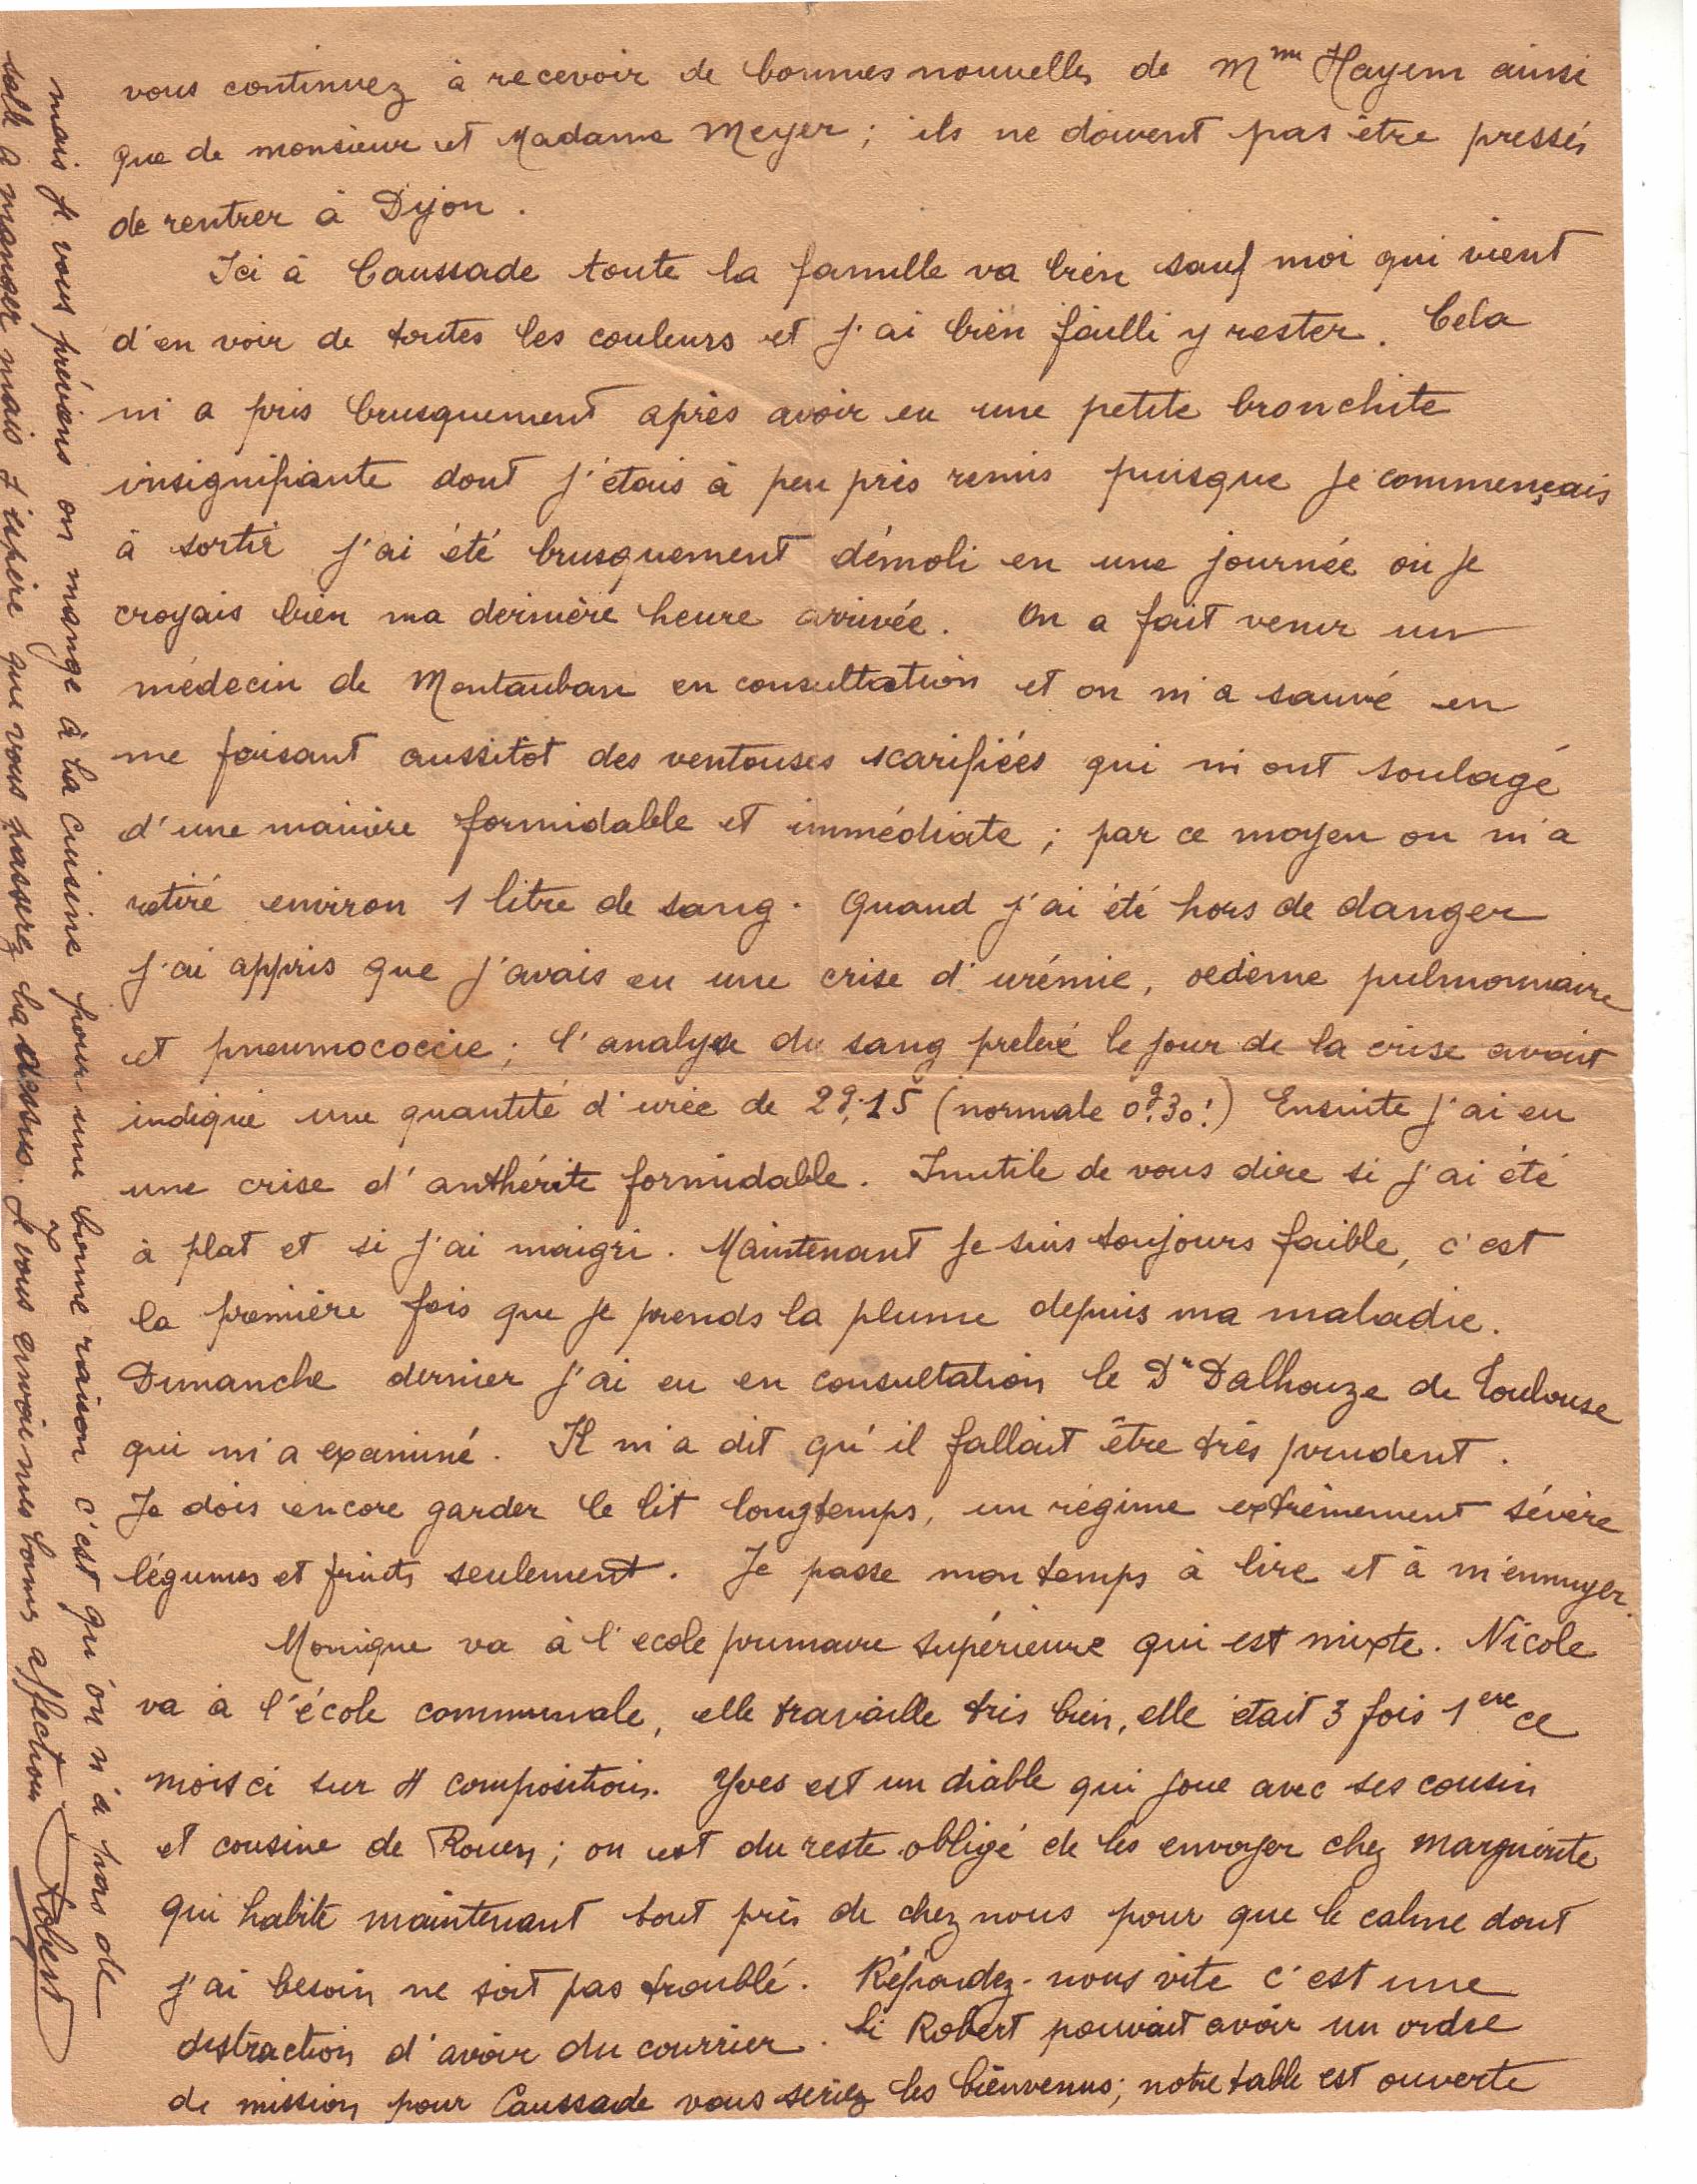 vous continuez à recevoir de bonnes nouvelles de Mme Hayem ainsi
que de monsieur et Madame Meyer ; ils ne doivent pas être pressés
de rentrer à Dijon.
Ici à Caussade toute la famille va bien sauf moi qui vient
d'en voir de toutes les couleurs et j'ai bien failli y rester. Cela
m'a pris brusquement après avoir eu une petite bronchite
insignifiante dont j'étais à peu près remis puisque je commençais
à sortir j'ai été brusquement démoli en une journée où je
croyais bien ma dernière heure arrivée. On a fait venir un
médecin de Montauban en consultation et on m'a sauvé en
me faisant aussitôt des ventouses scarifiées qui m'ont soulagé
d'une manière formidable et immédiate ; par ce moyen on m'a
retiré environ 1 litre de sang. Quand j'ai été hors de danger
j'ai appris que j'avais eu une crise d'urémie, oedème pulmonnaire
et pneumococcie ; l'analyse du sang prelevé le jour de la crise avait
indiqué une quantité d'urée de 2g,15 (normale 0g,30!) Ensuite j'ai eu
une crise d'anthérite formidable. Inutile de vous dire si j'ai été
à plat et si j'ai maigri. Maintenant je suis toujours faible, c'est
la première fois que je prends la plume depuis ma maladie.
Dimanche dernier j'ai eu en consultation le Dr Dalhouze de Toulouse
qui m'a examiné. Il m'a dit qu'il fallait être très prudent.
Je dois encore garder le lit longtemps, un régime extrêmement sévère
légumes et fruits seulement. Je passe mon temps à lire et à m'ennuyer.
Monique va à l'ecole primaire supérieure qui est mixte. Nicole
va à l'école communale, elle travaille très bien, elle était 3 fois 1ere ce
mois ci sur 4 compositions. Yves est un diable qui joue avec ses cousin
et cousine de Rouen ; on est du reste obligé de les envoyer chez Marguerite
qui habite maintenant tout près de chez nous pour que le calme dont
j'ai besoin ne soit pas troublé. Répondez-nous vite c'est une
distraction d'avoir du courrier. Si Robert pouvait avoir un ordre
de mission pour Caussade vous seriez les bienvenus ; notre table est ouverte
mais je vous préviens on mange à la cuisine pour une bonne raison c'est qu'on n'a pas de
salle à manger mais j'espère que vous passerez là dessus. Je vous envoie mes bonnes affections.
Robert